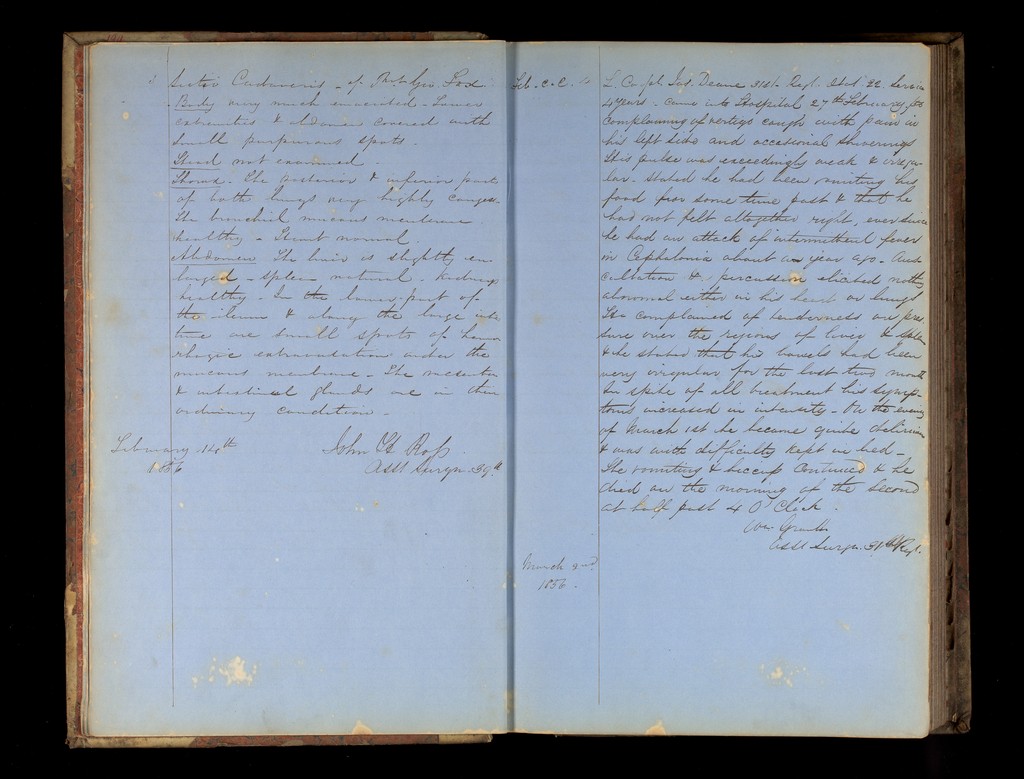 Sectio Cadaveris - of Geo. Fox
Body very much emaciated. Lower
extremities & abdomen covered with
small purpurous spots.
Head not examined -
Thorax. The posterior & inferior part
of both lungs very highly conges-
The bronchial mucous membrane
healthy - Heart normal.
Abdomen The liver is slightly en
larged - spleen natural. Kidneys
healthy - In the lower part of
the ileum & along the large intes
tine are small spots of hemor
rhagic extravasation under the
mucous membrane - The mesenteric
& intestinal glands are in their
ordinary condition -
February 14th
1856
John Ross
Asst Surgn. 39th
Feb.
L. Corpl. Jas. Deane 31st Regt. Aetat 22. Service
4 years. came into Hospital 27th February
complaining of vertigo cough with pain in
his left side and occasional shiverings
His pulse was exceedingly weak & irregu-
lar. stated he had been vomiting his
food for some time past & that he
had not felt altogether right, ever since
he had an attack of intermittent fever
in Cephalonia about a year ago. Aus
cultation & percussion elicited nothing
abnormal either in his heart or lungs
He complained of tenderness on pres
sure over the regions of liver & spleen
& he stated that his bowels had been
very irregular for the last two months
In spite of all treatment his symp-
toms increased in intensity - On the evening
of March 1st he became quite delirious
& was with difficulty kept in bed -
The vomiting & hiccup continued & he
died on the morning of the second
at half past 4 O'Clock.
Asst Surgn. 31st Regt.
March 2nd
1856.